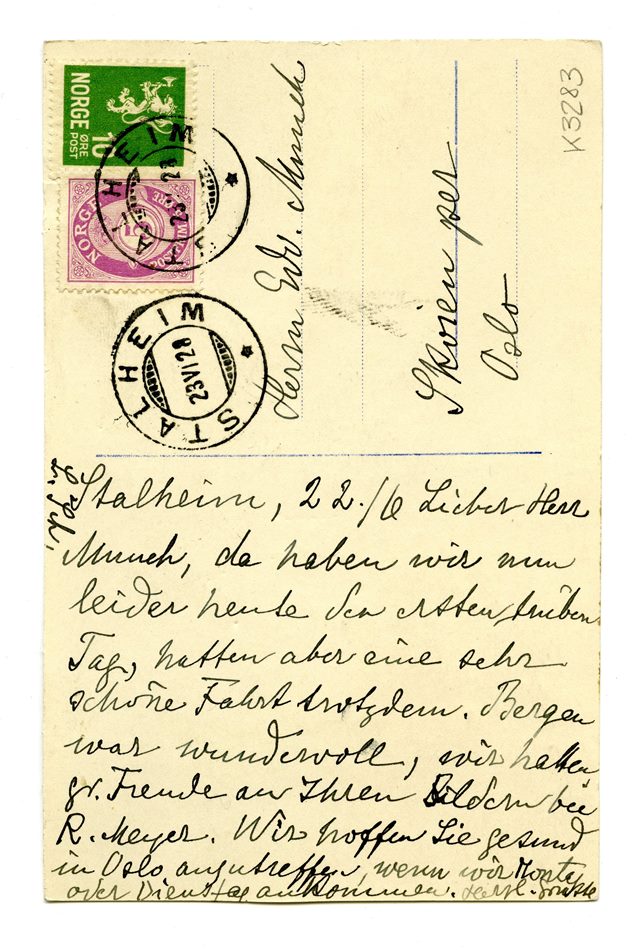 K3283
NORGE
10
ØRE
POST
NORGE
5
STALHEIM
23 VI 28
STALHEIM
23 VI 28
Herrn Edv. Munch
Skøien per
Oslo
Stalheim, 22./6 Lieber Herr
Munch, da haben wir nun
leider heute den ersten trüben
Tag, hatten aber eine sehr
schöne Fahrt trotzdem. Bergen
war wundervoll, wir hatten
gr. Freude an Ihren Bildern bei
R. Meyer. Wir hoffen Sie gesund
in Oslo anzutreffen, wenn wir Montg
oder Dienstag ankommen. Herzl. Grüsse